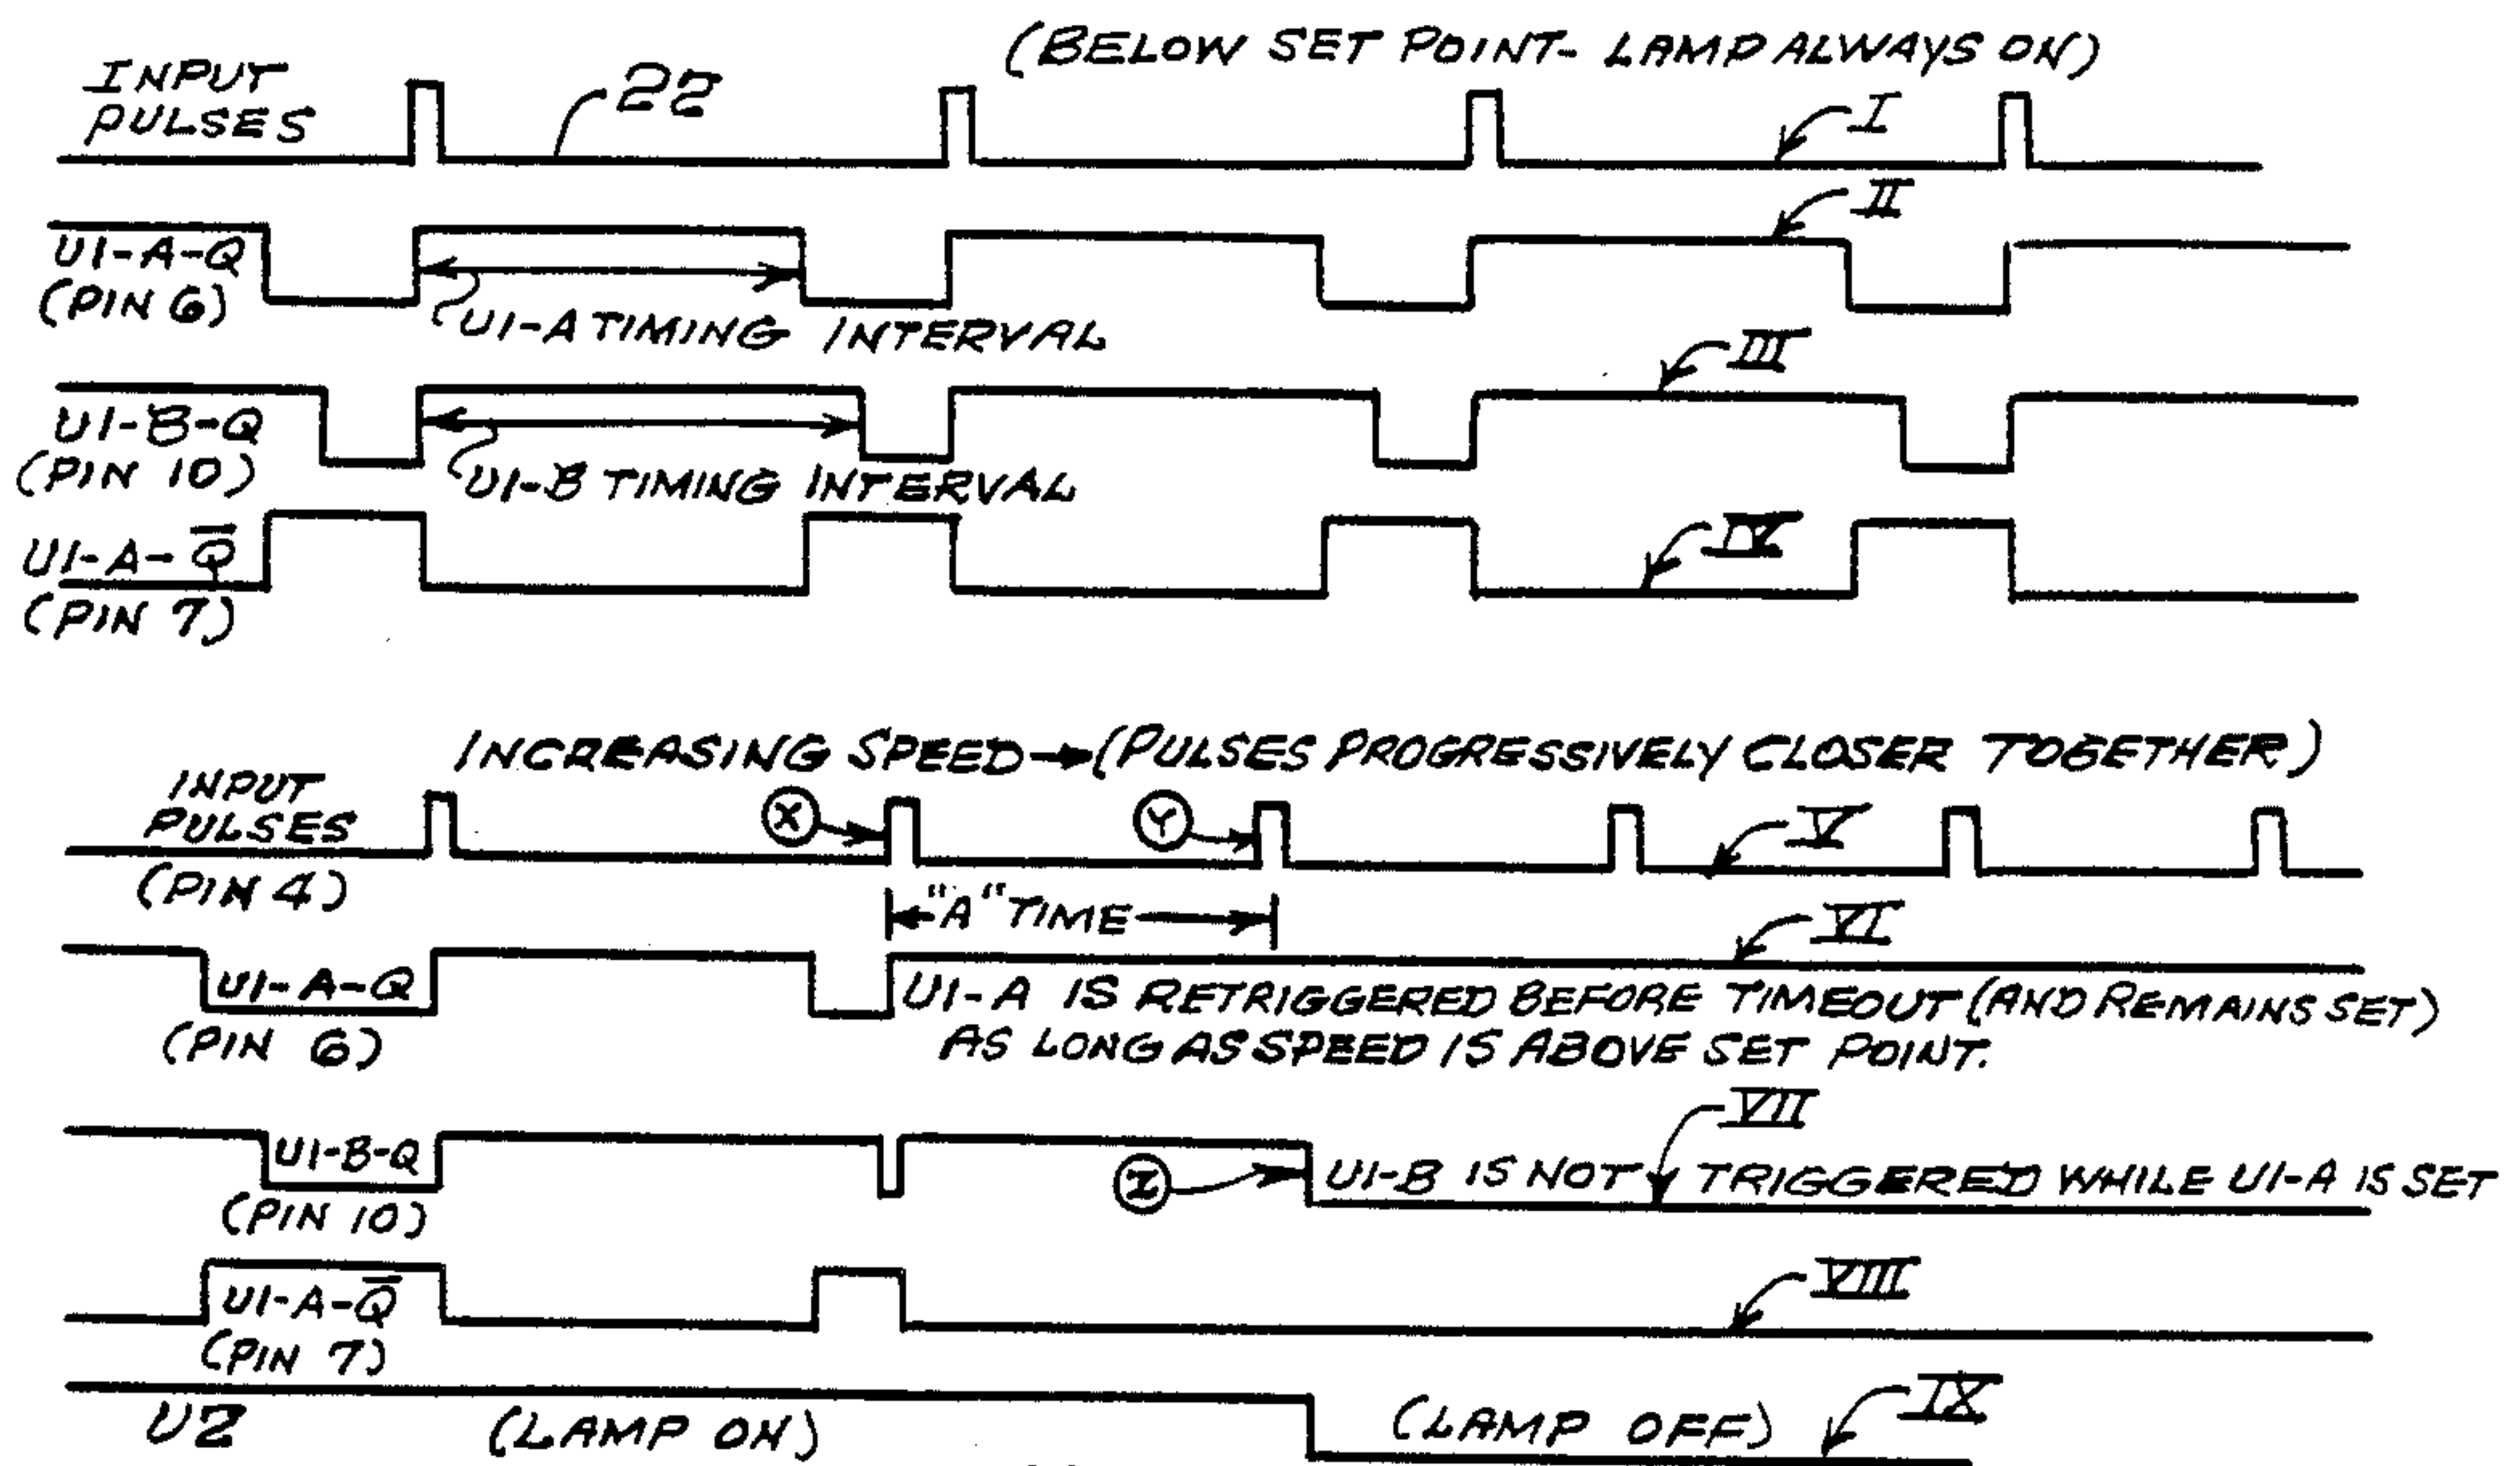 (BELOW SET POINT- LAMP ALWAYS ON)
INPUT
PULSES
22
I
II
U1-A-Q
(PIN 6)
U1-A TIMING INTERVAL
III
U1-B-Q
(PIN 10)
U1-B TIMING INTERVAL
IV
U1-A-Q̅
(PIN 7)
INCREASING SPEED→(PULSES PROGRESSIVELY CLOSER TOGETHER)
INPUT
PULSES
(PIN 4)
X
Y
V
"A" TIME
VI
U1-A-Q
(PIN 6)
U1-A IS RETRIGGERED BEFORE TIMEOUT (AND REMAINS SET)
AS LONG AS SPEED IS ABOVE SET POINT.
VII
U1-B-Q
(PIN 10)
Z
U1-B IS NOT TRIGGERED WHILE U1-A IS SET
VIII
U1-A-Q̅
(PIN 7)
IX
U2
(LAMP ON)
(LAMP OFF)